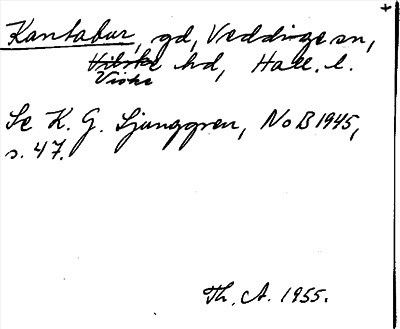 Kantabur, gd, Veddinge sn,
Viske hd, Hall. l.
Se K. G. Ljunggren, NoB 1945,
s. 47.
Th. A. 1955.